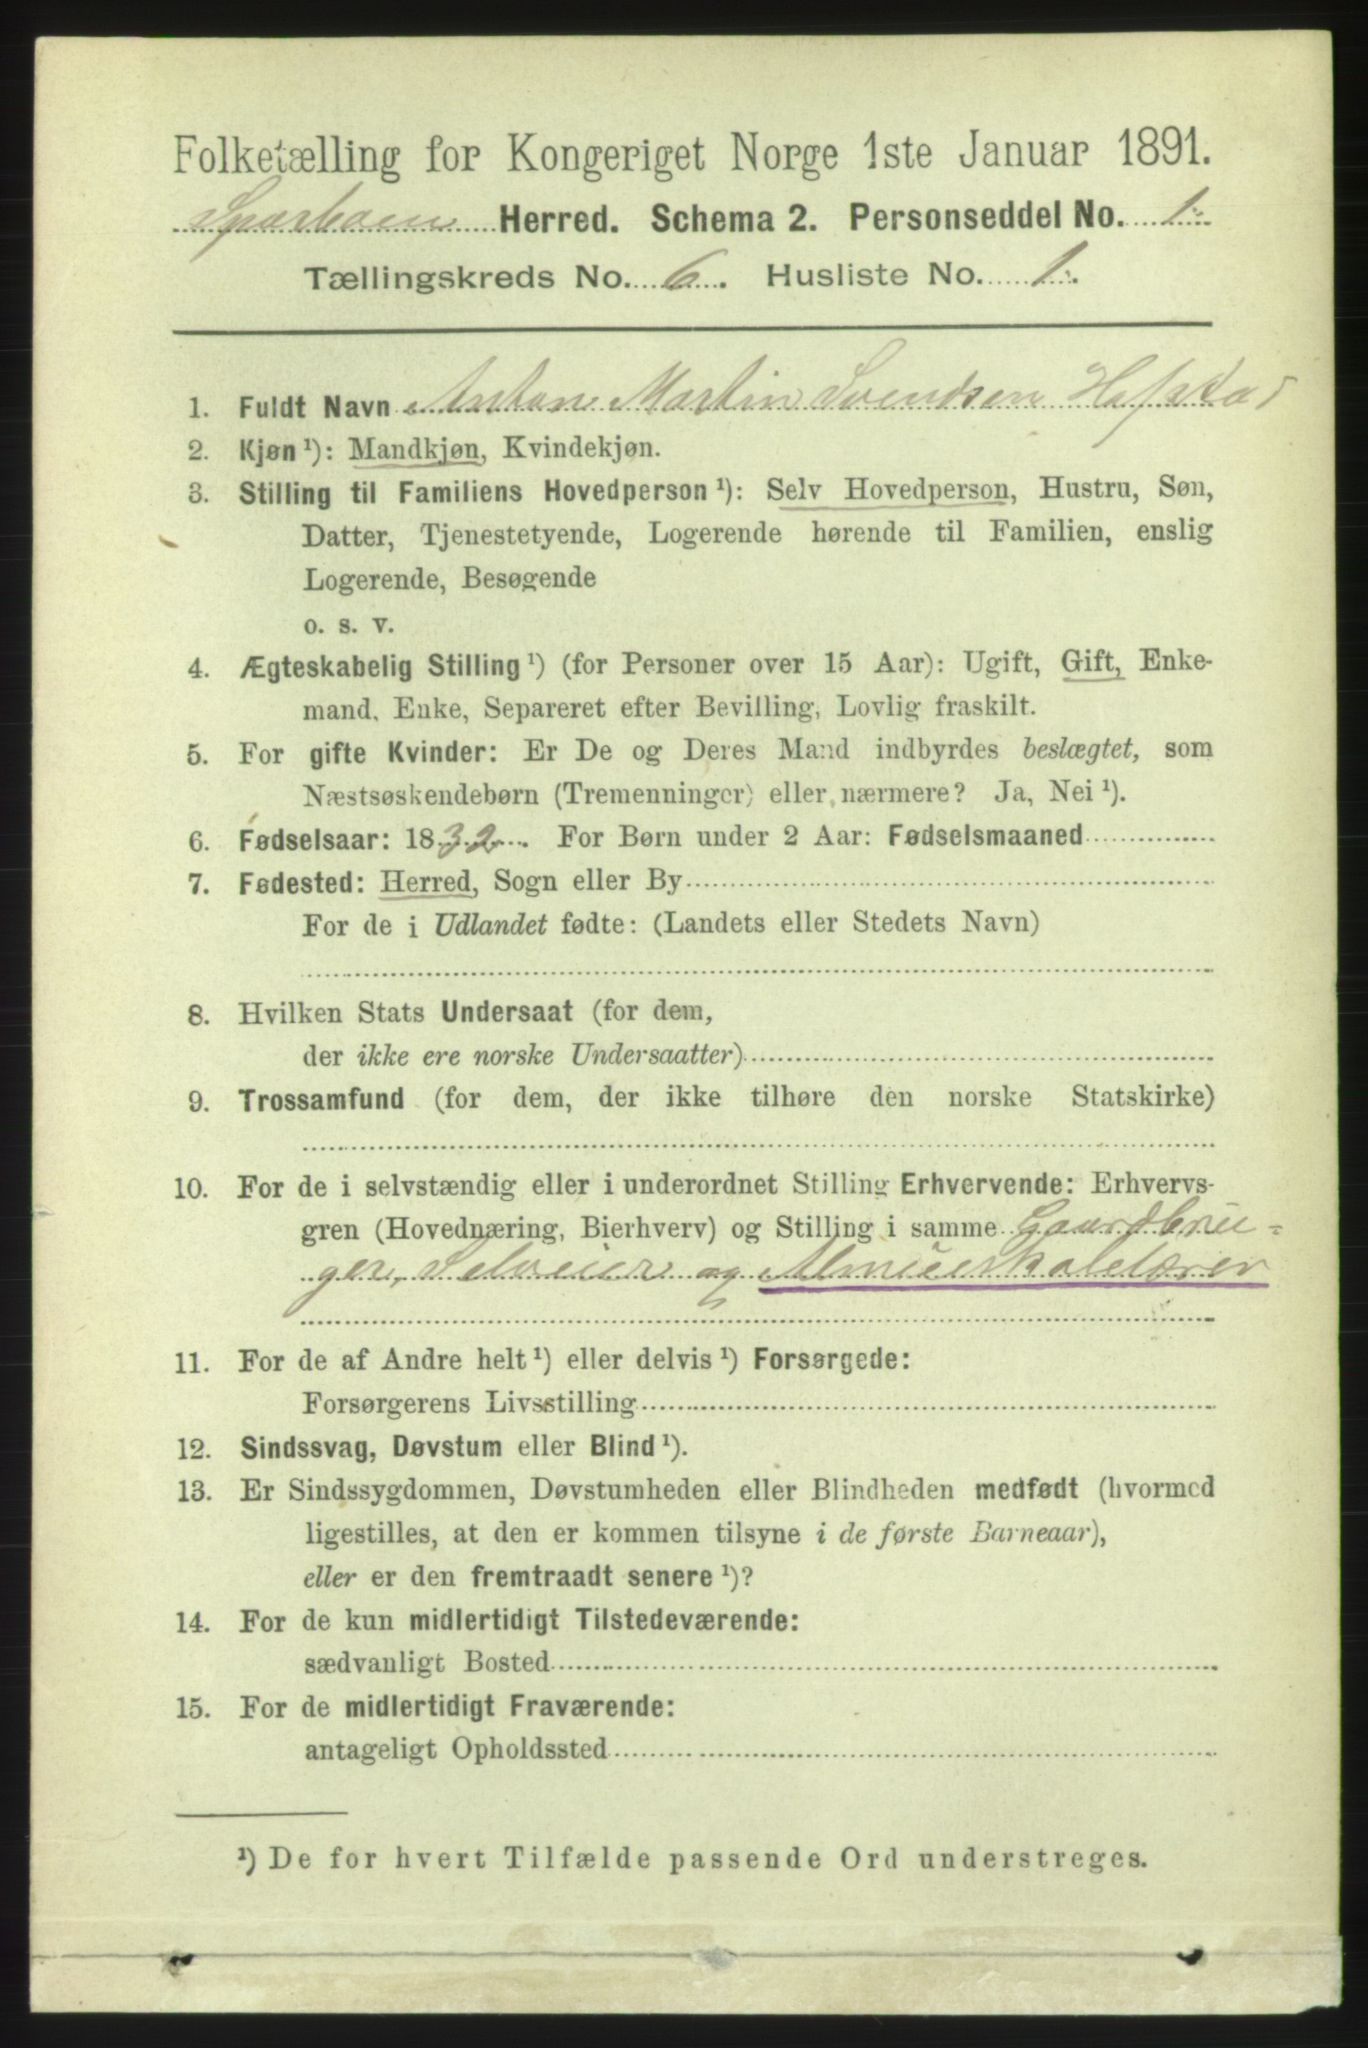 Folketælling for Kongeriget Norge 1ste Januar 1891.
Sparboen Herred. Schema 2. Personseddel No. 1.
Tællingskreds No. 6. Husliste No. 1.
1. Fuldt Navn Anton Martin Svendsen Hafstad
2. Kjøn ¹): Mandkjøn, Kvindekjøn.
3. Stilling til Familiens Hovedperson ¹): Selv Hovedperson, Hustru, Søn,
Datter, Tjenestetyende, Logerende hørende til Familien, enslig
Logerende, Besøgende
o. s. v.
4. Ægteskabelig Stilling ¹) (for Personer over 15 Aar): Ugift, Gift, Enke-
mand, Enke, Separeret efter Bevilling, Lovlig fraskilt.
5. For gifte Kvinder: Er De og Deres Mand indbyrdes beslægtet, som
Næstsøskendebørn (Tremenninger) eller nærmere? Ja, Nei ¹).
6. Fødselsaar: 1832. For Børn under 2 Aar: Fødselsmaaned
7. Fødested: Herred, Sogn eller By
For de i Udlandet fødte: (Landets eller Stedets Navn)
8. Hvilken Stats Undersaat (for dem,
der ikke ere norske Undersaatter)
9. Trossamfund (for dem, der ikke tilhøre den norske Statskirke)
10. For de i selvstændig eller i underordnet Stilling Erhvervende: Erhvervs-
gren (Hovednæring, Bierhverv) og Stilling i samme Gaardbru=
ger, Selveier og Almueskolelærer
11. For de af Andre helt ¹) eller delvis ¹) Forsørgede:
Forsørgerens Livsstilling
12. Sindssvag, Døvstum eller Blind ¹).
13. Er Sindssygdommen, Døvstumheden eller Blindheden medfødt (hvormed
ligestilles, at den er kommen tilsyne i de første Barneaar),
eller er den fremtraadt senere ¹)?
14. For de kun midlertidigt Tilstedeværende:
sædvanligt Bosted
15. For de midlertidigt Fraværende:
antageligt Opholdssted
¹) De for hvert Tilfælde passende Ord understreges.